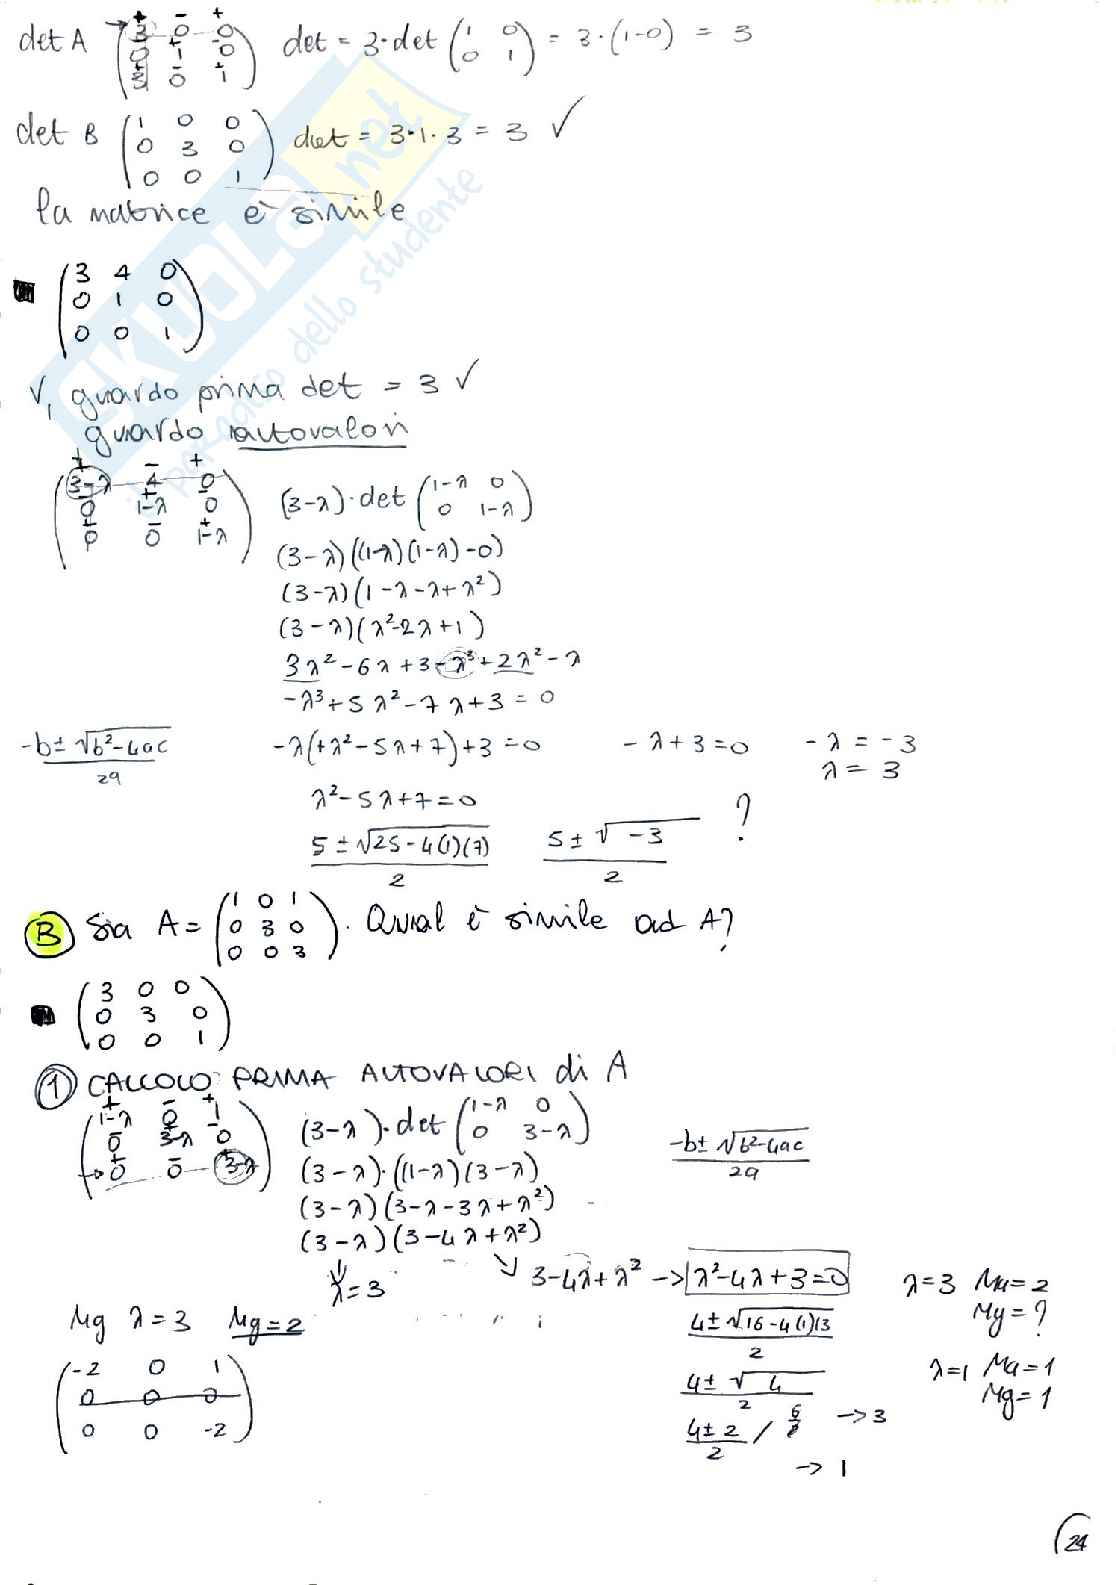 det A (3 0 0 / 0 1 0 / 3 0 1) det = 3·det (1 0 / 0 1) = 3·(1-0) = 3
det B (1 0 0 / 0 3 0 / 0 0 1) det = 3·1·3 = 3 ✓
la matrice è simile
(3 4 0 / 0 1 0 / 0 0 1)
V, guardo prima det = 3 ✓
guardo autovalori
(3-λ 4 0 / 0 1-λ 0 / 0 0 1-λ) (3-λ)·det (1-λ 0 / 0 1-λ)
(3-λ)((1-λ)(1-λ)-0)
(3-λ)(1-λ-λ+λ²)
(3-λ)(λ²-2λ+1)
3λ²-6λ+3-λ³+2λ²-λ
-λ³+5λ²-7λ+3=0
-b±√b²-4ac / 2a -λ(+λ²-5λ+7)+3=0 -λ+3=0 -λ=-3
λ=3
λ²-5λ+7=0
5±√25-4(1)(7) / 2 5±√-3 / 2 ?
B Sia A= (1 0 1 / 0 3 0 / 0 0 3). Qual è simile ad A?
(3 0 0 / 0 3 0 / 0 0 1)
1 CALCOLO PRIMA AUTOVALORI di A
(1-λ 0 1 / 0 3-λ 0 / 0 0 3-λ) (3-λ)·det (1-λ 0 / 0 3-λ)
-b±√b²-4ac / 2a
(3-λ)·((1-λ)(3-λ)
(3-λ)(3-λ-3λ+λ²)
(3-λ)(3-4λ+λ²)
λ=3 3-4λ+λ² → λ²-4λ+3=0 λ=3 Ma=2
Mg=?
Mg λ=3 Mg=2 4±√16-4(1)(3 / 2
(-2 0 1 / 0 0 0 / 0 0 -2) 4±√4 / 2 λ=1 Ma=1
Mg=1
4±2 / 2 → 3
→ 1
24
SKUOLA.net
il paradiso dello studente